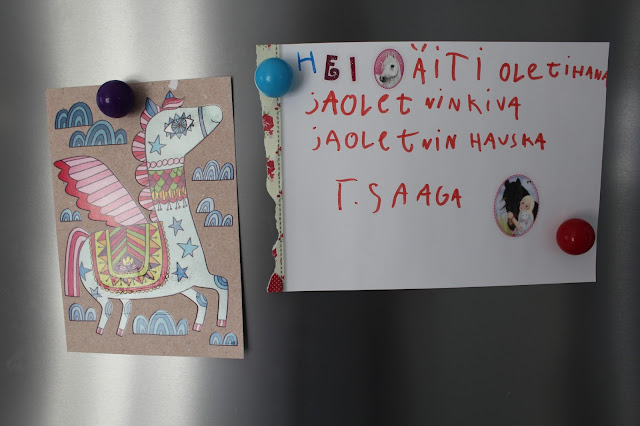 HEI ÄITI OLETIHANA
jAOLET NINKIVA
jAOLET NIN HAUSKA
T. SAAGA